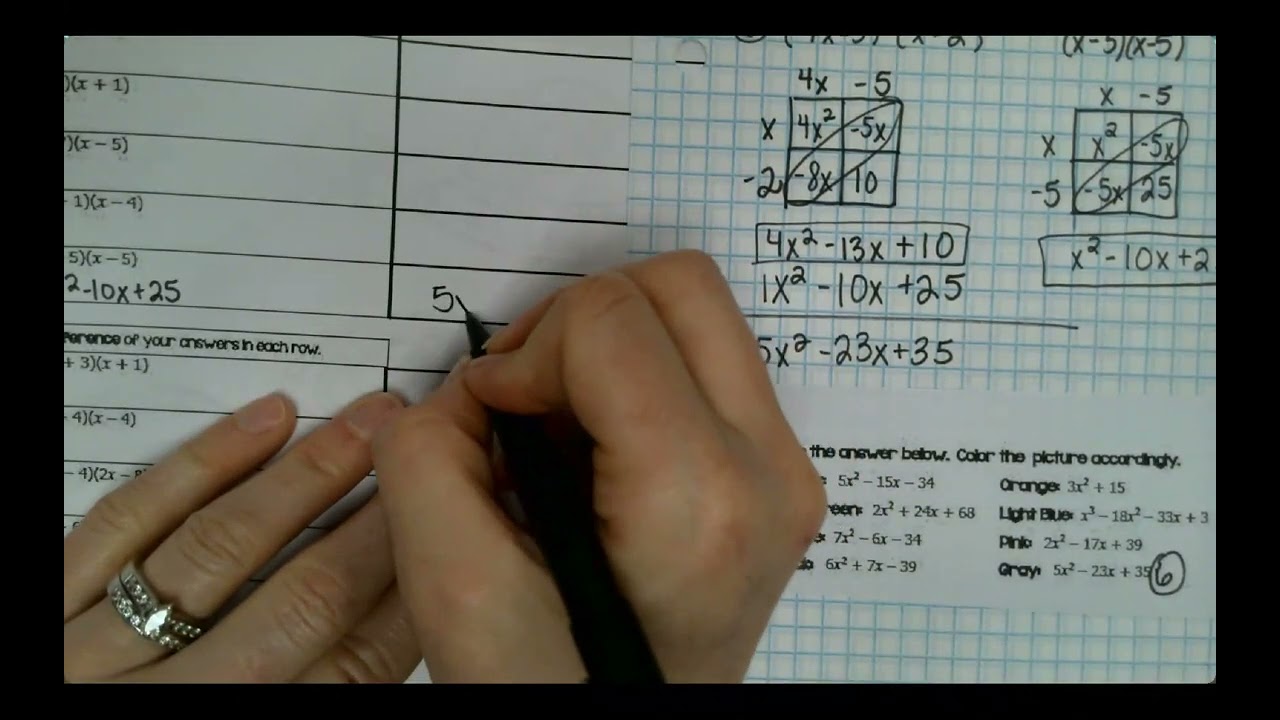 )(x + 1)
)(x − 5)
1)(x − 4)
5)(x − 5)
²-10x+25
5
ference of your answers in each row.
+ 3)(x + 1)
4)(x − 4)
− 4)(2x −
(x-5)(x-5)
4x -5
x 4x² -5x
-2 -8x 10
4x²-13x+10
1x²-10x+25
5x²-23x+35
x -5
x x² -5x
-5 -5x 25
x²-10x+2
the answer below. Color the picture accordingly.
5x² − 15x − 34
reen: 2x² + 24x + 68
7x² − 6x − 34
6x² + 7x − 39
Orange: 3x² + 15
Light Blue: x³ − 18x² − 33x + 3
Pink: 2x² − 17x + 39
Gray: 5x² − 23x + 35 6